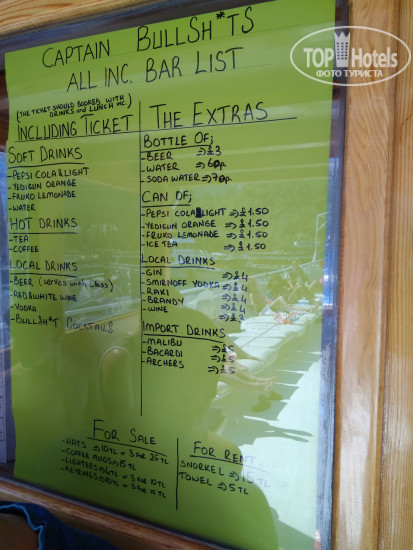 CAPTAIN BULLSH*TS
ALL INC. BAR LIST
(THE TICKET SHOULD BOOKED WITH
DRINKS and LUNCH inc.)
INCLUDING TICKET
SOFT DRINKS
- PEPSI COLA & LIGHT
- YEDIGUN ORANGE
- FRUKO LEMONADE
- WATER
HOT DRINKS
- TEA
- COFFEE
LOCAL DRINKS
- BEER (serves with glass)
- RED & WHITE WINE
- VODKA
- BULLSH*T COCKTAILS
THE EXTRAS
BOTTLE OF;
- BEER ⇒ £3
- WATER ⇒ 60p.
- SODA WATER ⇒ 70p.
CAN OF;
- PEPSI COLA LIGHT ⇒ £1.50
- YEDIGUN ORANGE ⇒ £1.50
- FRUKO LEMONADE ⇒ £1.50
- ICE TEA ⇒ £1.50
LOCAL DRINKS
- GIN ⇒ £4
- SMIRNOFF VODKA ⇒ £4
- RAKI ⇒ £4
- BRANDY ⇒ £4
- WINE ⇒ £3
IMPORT DRINKS
- MALIBU ⇒ £5
- BACARDI ⇒ £5
- ARCHERS ⇒ £5
FOR SALE
- HATS ⇒ 10 TL or 3 FOR 25 TL
- COFFEE MUGS ⇒ 15 TL
- LIGHTERS ⇒ 4 TL or 3 FOR 10 TL
- KEYRINGS ⇒ 10 TL or 3 FOR
FOR RENT
SNORKEL ⇒ 15 TL
TOWEL ⇒ 5 TL
TOP Hotels
ФОТО ТУРИСТА